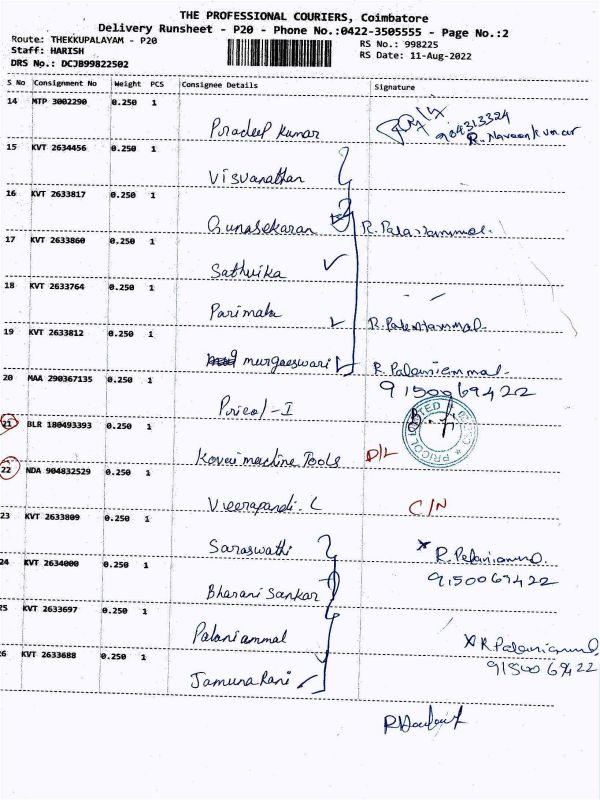 THE PROFESSIONAL COURIERS, Coimbatore
Delivery Runsheet - P20 - Phone No.:0422-3505555 - Page No.:2
Route: THEKKUPALAYAM - P20
RS No.: 998225
Staff: HARISH
RS Date: 11-Aug-2022
DRS No.: DCJB99822502
S No Consignment No Weight PCS Consignee Details Signature
14 MTP 3002290 0.250 1
Pradeep Kumar R. Naveenkumar
15 KVT 2634456 0.250 1
Visvanathan
16 KVT 2633817 0.250 1
Gunasekaran R. Palaniammal.
17 KVT 2633860 0.250 1
Sathvika
18 KVT 2633764 0.250 1
Parimala R. Palaniammal.
19 KVT 2633812 0.250 1
murgaeswari R. Palaniammal.
20 MAA 290367135 0.250 1
9150069422
Pricol - I
PRICOL LIMITED
21 BLR 180493393 0.250 1
Kovai machine Tools D/L
22 NDA 904832529 0.250 1
Veerapandi. C C/N
23 KVT 2633809 0.250 1
Saraswathi R. Palaniammal
24 KVT 2634000 0.250 1
9150069422
Bharani Sankar
25 KVT 2633697 0.250 1
Palaniammal R. Palaniammal
26 KVT 2633688 0.250 1
9150069422
Jamuna Rani